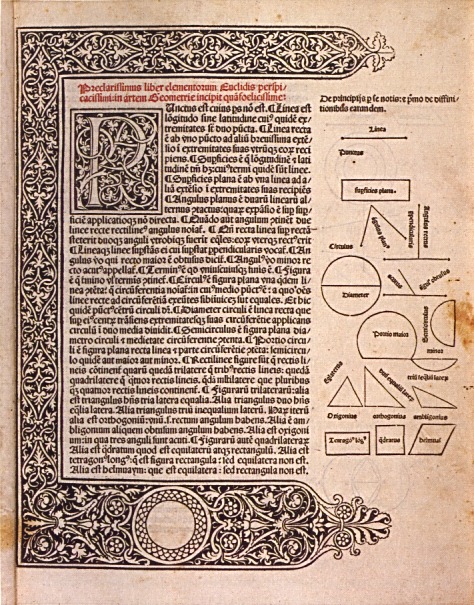 Preclarissimus liber elementorum Euclidis perspi
cacissimi: in artem Geometrie incipit quãfoelicissime:
Punctus est cuius ps nõ est. ¶ Linea est
lõgitudo sine latitudine cui⁹ quidẽ ex-
tremitates sũt duo pũcta. ¶ Linea recta
ẽ ab vno pũcto ad aliũ breuissima extẽ-
sio i extremitates suas vtrũqꝫ eoꝝ reci
piens. ¶ Supficies ẽ q̃ lõgitudinẽ ⁊ lati
tudinẽ tm̃ hꝫ: cui⁹ termi quidẽ sũt linee.
¶ Supficies plana ẽ ab vna linea ad a-
liã extẽsio i extremitates suas recipiẽs
¶ Angulus planus ẽ duarũ linearũ al-
ternus ꝯtactus: quaꝝ expãsio ẽ sup sup-
ficiẽ applicatioqꝫ nõ directa. ¶ Quãdo aut angulum ꝯtinẽt due
linee recte rectiline⁹ angulus noiat̃. ¶ Qñ recta linea sup rectã
steterit duoqꝫ anguli vtrobiqꝫ fuerit eq̃les: eoꝝ vterqꝫ rect⁹ erit
¶ Lineaqꝫ linee supstãs ei cui supstat ppendicularis vocat̃. ¶ An
gulus vo qui recto maior ẽ obtusus dicit̃. ¶ Angul⁹ vo minor re
cto acut⁹ appellat̃. ¶ Termin⁹ ẽ qd vniuscuiusqꝫ finis ẽ. ¶ Figura
ẽ q̃ tmino vl̃ termis ꝯtinet̃. ¶ Circul⁹ ẽ figura plana vna qdem li-
nea ꝯtẽta: q̃ circũferentia noiat̃: in cui⁹ medio pũct⁹ ẽ: a quo oẽs
linee recte ad circũferẽtiã exeũtes sibiinuicẽ sut equales. Et hic
quidẽ pũct⁹ cẽtrũ circuli dr̃. ¶ Diameter circuli ẽ linea recta que
sup ei⁹ centꝝ trãsiens extremitatesqꝫ suas circũferẽtie applicans
circulũ i duo media diuidit. ¶ Semicirculus ẽ figura plana dia-
metro circuli ⁊ medietate circũferentie ꝯtenta. ¶ Portio circu-
li ẽ figura plana recta linea ⁊ parte circũferẽtie ꝯtẽta: semicircu-
lo quidẽ aut maior aut minor. ¶ Rectilinee figure sũt q̃ rectis li-
neis cõtinent̃ quarũ quedã trilatere q̃ trib⁹ rectis lineis: quedã
quadrilatere q̃ qtuor rectis lineis. qdã multilatere que pluribus
qꝫ quatuor rectis lineis continent̃. ¶ Figurarũ trilaterarũ: alia
est triangulus hñs tria latera equalia. Alia triangulus duo hñs
eq̃lia latera. Alia triangulus triũ inequalium laterũ. Haꝝ iterũ
alia est orthogoniũ: vnũ. s. rectum angulum habens. Alia ẽ am-
bligonium aliquem obtusum angulum habens. Alia est oxigoni
um: in qua tres anguli sunt acuti. ¶ Figurarũ autẽ quadrilateraꝝ
Alia est q̃dratum quod est equilaterũ atqꝫ rectangulũ. Alia est
tetragon⁹ long⁹: q̃ est figura rectangula: sed equilatera non est.
Alia est helmuaym: que est equilatera: sed rectangula non est.
De principijs p se notis: ⁊ pmo de diffini-
tionibus earandem.
Linea
Punctus
supficies plana.
āgulus plan⁹
Circulus
Diameter
acutus
āgul⁹ obtusus
Portio maior
Semicirculus
minor
Equilaterus
Oxigonius
orthogonius
ambligonius
Tetragon⁹ lōg⁹
q̃dratus
helmuaỹ